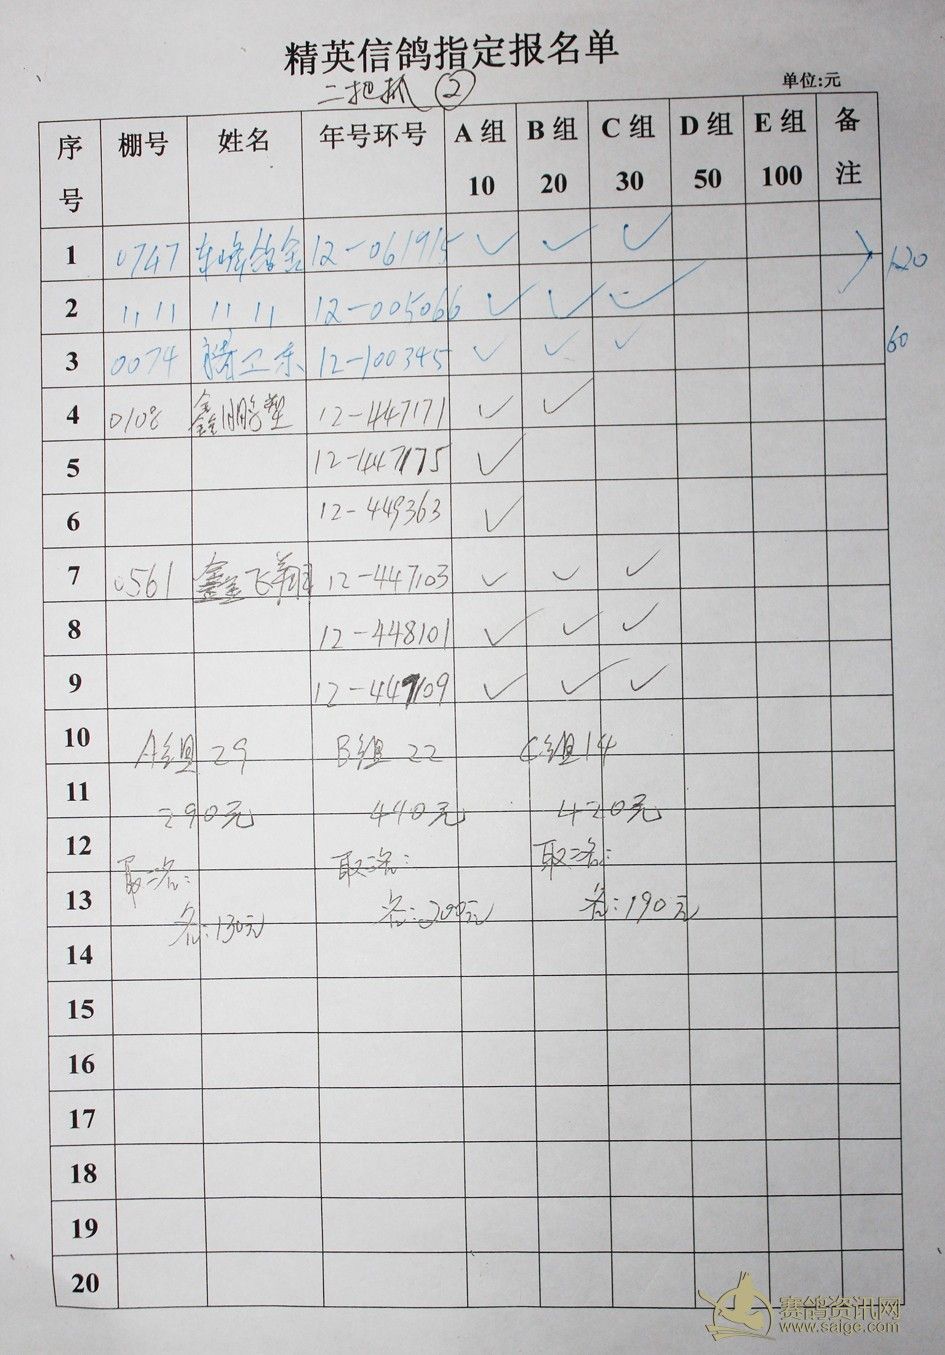 精英信鸽指定报名单
二把抓 ②
单位:元
序号 棚号 姓名 年号环号 A组 10 B组 20 C组 30 D组 50 E组 100 备注
1 0747 车峰鸽舍 12-061915 ✓ ✓ ✓
120
2 〃 〃 〃 〃 12-005066 ✓ ✓ ✓
3 0074 卫东 12-100345 ✓ ✓ ✓ 60
4 0108 鑫鹏塑 12-447171 ✓ ✓
5 12-447175 ✓
6 12-449363 ✓
7 0561 鑫金飞翔 12-447103 ✓ ✓ ✓
8 12-448101 ✓ ✓ ✓
9 12-447109 ✓ ✓ ✓
10 A组 29 B组 22 C组 14
11 290元 440元 420元
12 取二名: 取二名: 取二名:
13 各:130元 各:200元 各:190元
14
15
16
17
18
19
20
赛鸽资讯网
www.saige.com